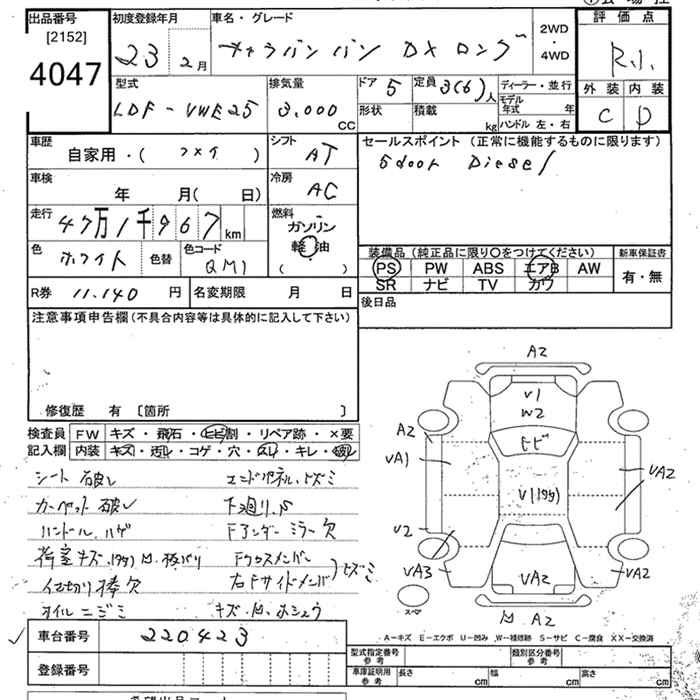 出品番号
[2152]
4047
初度登録年月
23 2月
車名・グレード
キャラバン バン DX ロング
2WD
・
4WD
評価点
R.1.
型式
LDF-VWE25
排気量
3,000 CC
ドア 5
形状
定員 3(6) 人
積載 kg
ディーラー・並行
モデル年式 年
ハンドル 左・右
外装 内装
C D
車歴
自家用・( )
シフト
AT
車検
年 月( 日)
冷房
AC
走行
47万1千967 km
燃料
ガソリン
軽油
( )
色
ホワイト
色替
色コード
QM1
R券 11,140 円
名変期限 月 日
セールスポイント (正常に機能するものに限ります)
5door Diesel
装備品 (純正品に限り○をつけてください)
PS PW ABS エアB AW
SR ナビ TV カワ
新車保証書
有・無
後日品
注意事項申告欄(不具合内容等は具体的に記入して下さい)
修復歴 有 〔箇所 〕
検査員 FW キズ・飛石・ヒビ割・リペア跡・×要
記入欄 内装 キズ・汚レ・コゲ・穴・スレ・キレ・破レ
シート 破レ
カーペット 破レ
ハンドル ハゲ
オイルニジミ
下廻リ.S
Fアンダーミラー欠
A2
V1
W2
A2
ヒビ
VA1
VA2
V2
VA3
VA2
VA2
スペア
A2
A-キズ E-エクボ U-凹み W-補修跡 S-サビ C-腐食 XX-交換済
車台番号 220423
登録番号
型式指定番号
参考
類別区分番号
参考
車庫証明用
参考
長さ cm 幅 cm 高さ cm